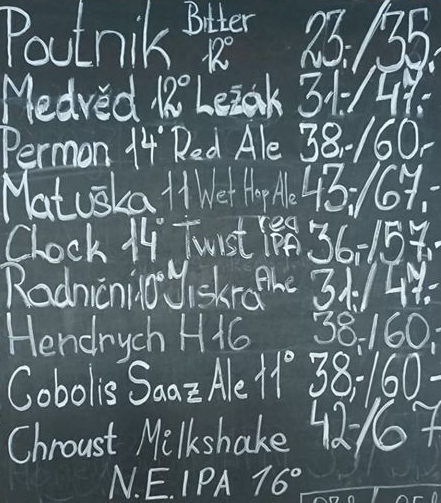 Poutnik Bitter 12° 23,-/35,
Medvěd 12° Ležák 31,-/47,-
Permon 14° Red Ale 38,-/60,-
Matuška 11 Wet Hop Ale 43,-/67,-
Clock 14° Twist red IPA 36,-/57,-
Radniční 10° Jiskra Ale 31,-/47,-
Hendrych H16 38,-/60,
Cobolis Saaz Ale 11° 38,-/60,-
Chroust Milkshake 42,-/67
N.E.IPA 16°